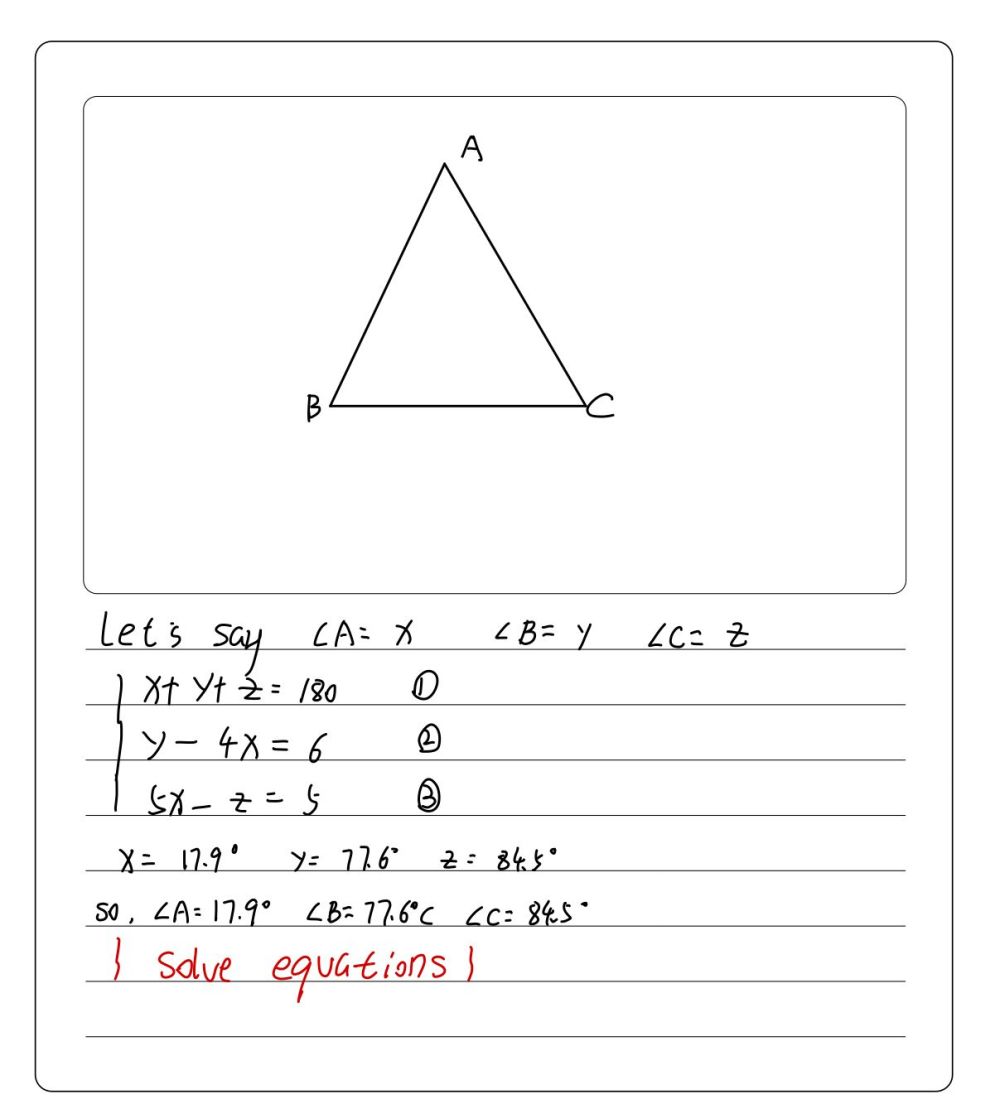 A
B
C
Let's say ∠A= x ∠B= y ∠C= z
x+ y+ z = 180 ①
y - 4x = 6 ②
5x - z = 5 ③
x = 17.9° y= 77.6° z = 84.5°
so, ∠A=17.9° ∠B=77.6°C ∠C= 84.5°
} Solve equations }